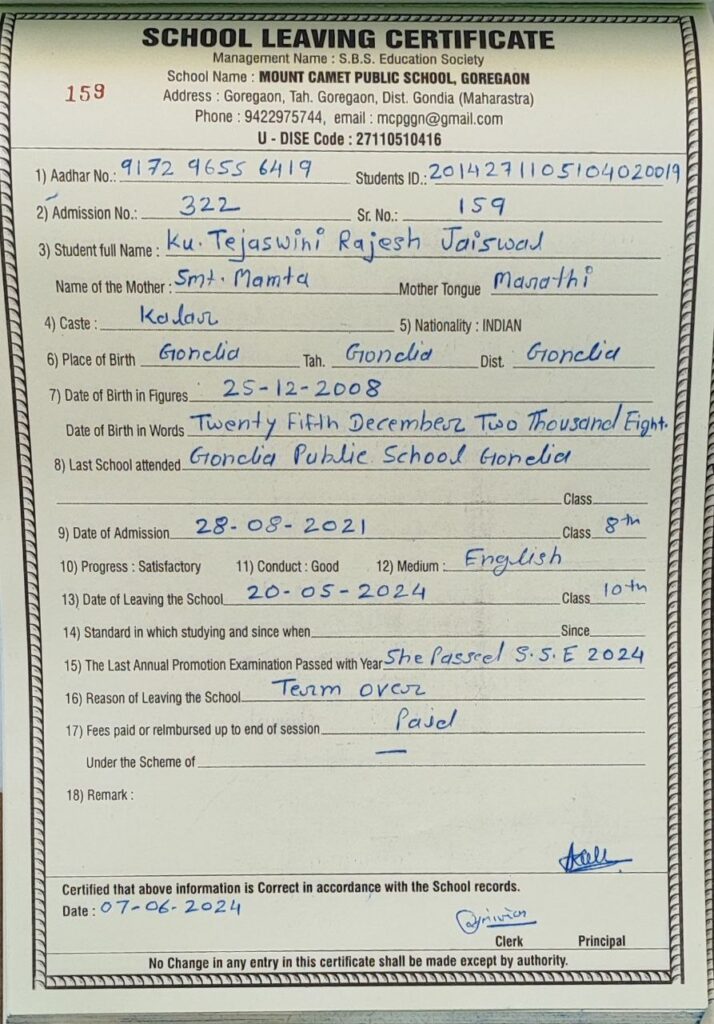 SCHOOL LEAVING CERTIFICATE
Management Name : S.B.S. Education Society
School Name : MOUNT CAMET PUBLIC SCHOOL, GOREGAON
159
Address : Goregaon, Tah. Goregaon, Dist. Gondia (Maharastra)
Phone : 9422975744, email : mcpggn@gmail.com
U - DISE Code : 27110510416
1) Aadhar No.: 9172 9655 6419 Students ID.: 2014271105104020019
2) Admission No.: 322 Sr. No.: 159
3) Student full Name : Ku. Tejaswini Rajesh Jaiswal
Name of the Mother : Smt. Mamta Mother Tongue Marathi
4) Caste : Kalar 5) Nationality : INDIAN
6) Place of Birth Gondia Tah. Gondia Dist. Gondia
7) Date of Birth in Figures 25-12-2008
Date of Birth in Words Twenty Fifth December Two Thousand Eight.
8) Last School attended Gondia Public School Gondia
Class
9) Date of Admission 28-08-2021 Class 8th
10) Progress : Satisfactory 11) Conduct : Good 12) Medium : English
13) Date of Leaving the School 20-05-2024 Class 10th
14) Standard in which studying and since when Since
15) The Last Annual Promotion Examination Passed with Year She Passed S.S.E 2024
16) Reason of Leaving the School Term over
17) Fees paid or reimbursed up to end of session Paid
Under the Scheme of —
18) Remark :
Certified that above information is Correct in accordance with the School records.
Date : 07-06-2024
Clerk Principal
No Change in any entry in this certificate shall be made except by authority.